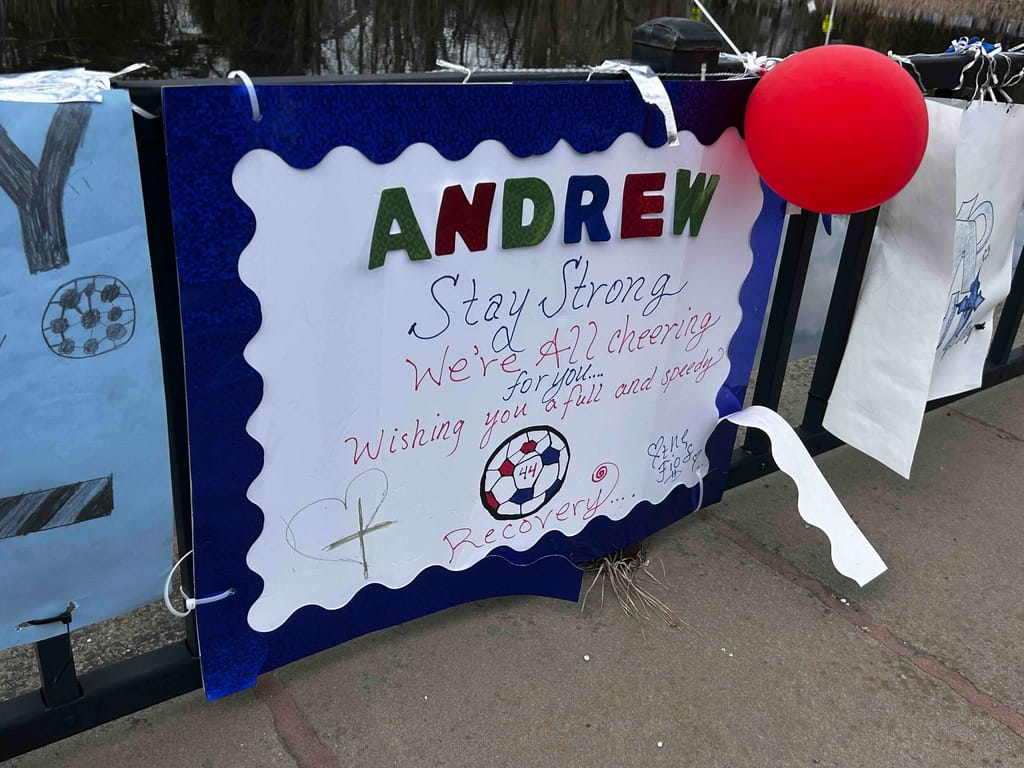 Y
ANDREW
Stay Strong
&
We're All cheering
for you....
Wishing you a full and speedy
44
Recovery....